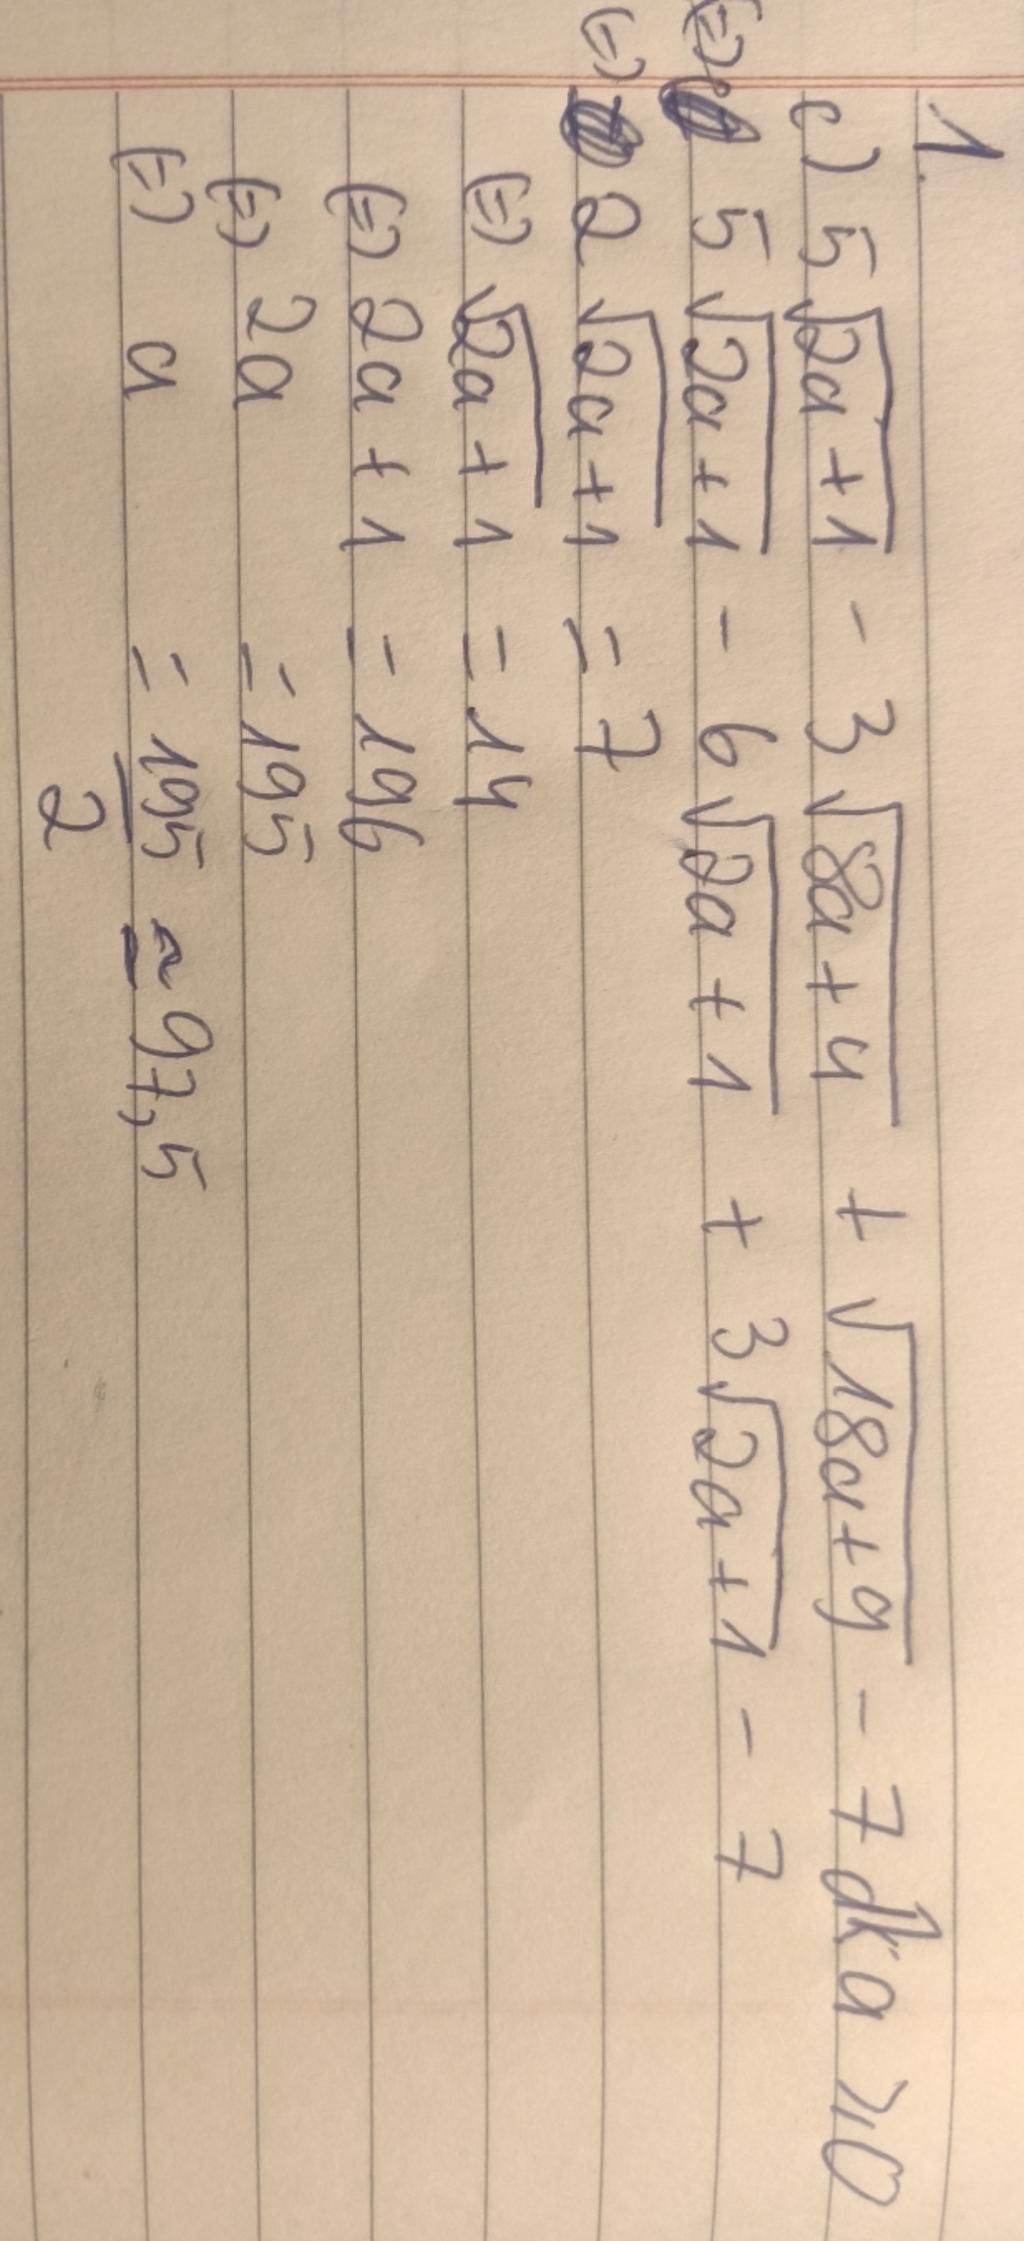 1.
c) 5√(2a+1) - 3√(8a+4) + √(18a+9) - 7 đk a ≥ 0
(=) 5√(2a+1) - 6√(2a+1) + 3√(2a+1) - 7
(=) 2√(2a+1) = 7
(=) √(2a+1) = 14
(=) 2a+1 = 196
(=) 2a = 195
(=) a = 195/2 = 97,5